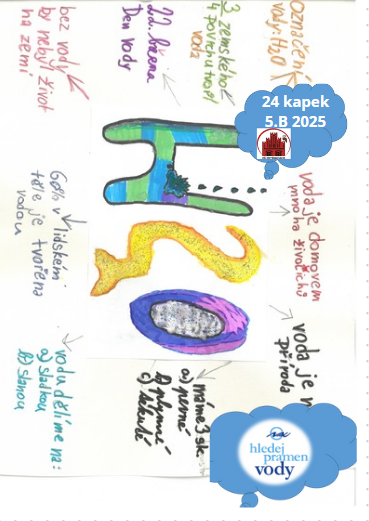 Označení
vody: H2O
3
4 zemského
povrchu tvoří
voda
22. března
Den vody
bez vody
by nebyl život
na zemi
24 kapek
5.B 2025
H
2
O
voda je domovem
mnoha živočichů
60% v lidském
těle je tvořena
vodou
voda je
příroda
máme 3 sk.
a) pevné
b) plynné
c) tekuté
vodu dělíme na:
a) sladkou
b) slanou
hledej
pramen
vody